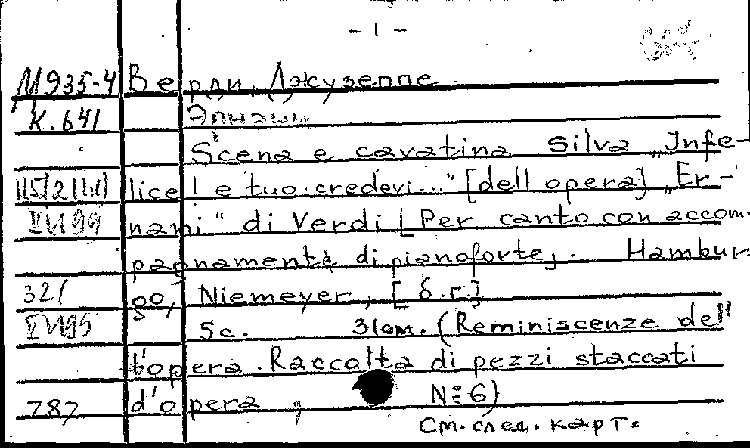 - 1 -
М935-4 Верди, Джузеппе
К.641
Scena e cavatina Silva „Infe-
lice! e tuo credevi..." [dell opera] „Er-
nani" di Verdi [Per canto con accom-
pagnamenta di pianoforte].. Hambur-
32/ go, Niemeyer, [б.г.]
5с. 31см. (Reminiscenze dell'
opera. Raccolta di pezzi staccati
787 d'opera, №6)
См. след. карт.